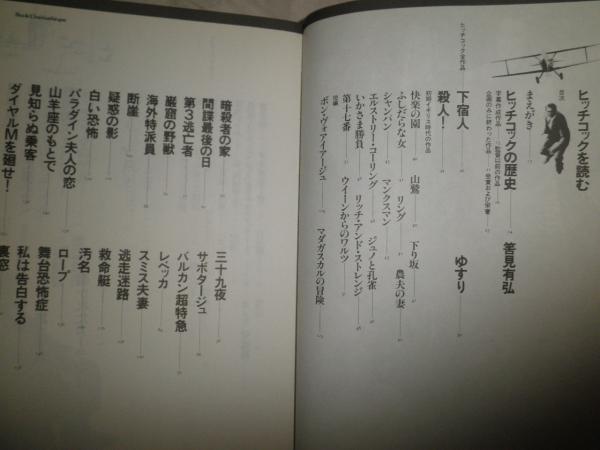 目次
ヒッチコックを読む
まえがき
ヒッチコックの歴史 筈見有弘
字幕作成作品 監督以前の作品
企画のみに終わった作品 受賞および栄誉
ヒッチコック全作品
下宿人 ゆすり
殺人！
初期イギリス時代の作品
快楽の園 山鷲 下り坂
ふしだらな女 リング 農夫の妻
シャンパン マンクスマン
エルストリー・コーリング ジュノと孔雀
いかさま勝負 リッチ・アンド・ストレンジ
第十七番 ウィーンからのワルツ
ボン・ヴォアイアージュ マダガスカルの冒険
暗殺者の家 三十九夜
間諜最後の日 サボタージュ
第3逃亡者 バルカン超特急
巌窟の野獣 レベッカ
海外特派員 スミス夫妻
断崖 逃走迷路
疑惑の影 救命艇
白い恐怖 汚名
パラダイン夫人の恋 ロープ
山羊座のもとで 舞台恐怖症
見知らぬ乗客 私は告白する
ダイヤルMを廻せ！ 裏窓